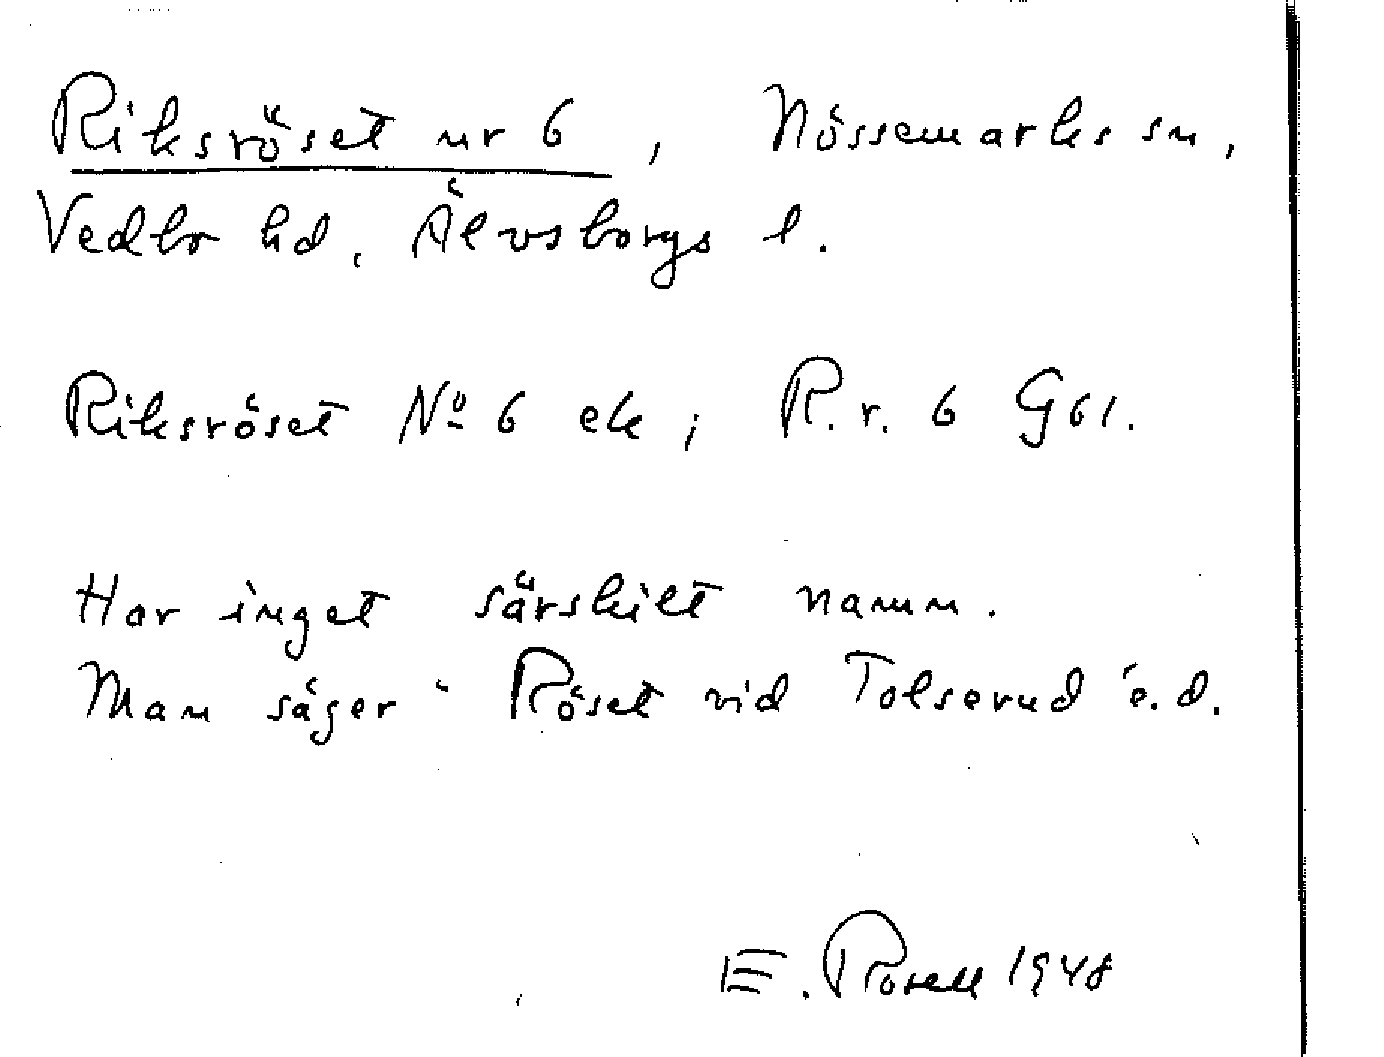 Riksröset nr 6, Nössemarks sn,
Vedbo hd, Älvsborgs l.
Riksröset No 6 ek; R.r. 6 Gbl.
Har inget särskilt namn.
Man säger Röset vid Tolserud e.d.
E. Rosell 1948